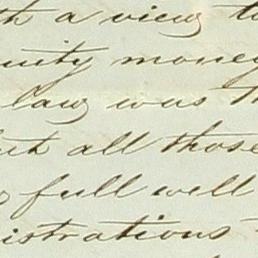 th a view to
unity money
law was th
but all those
full well
istrations